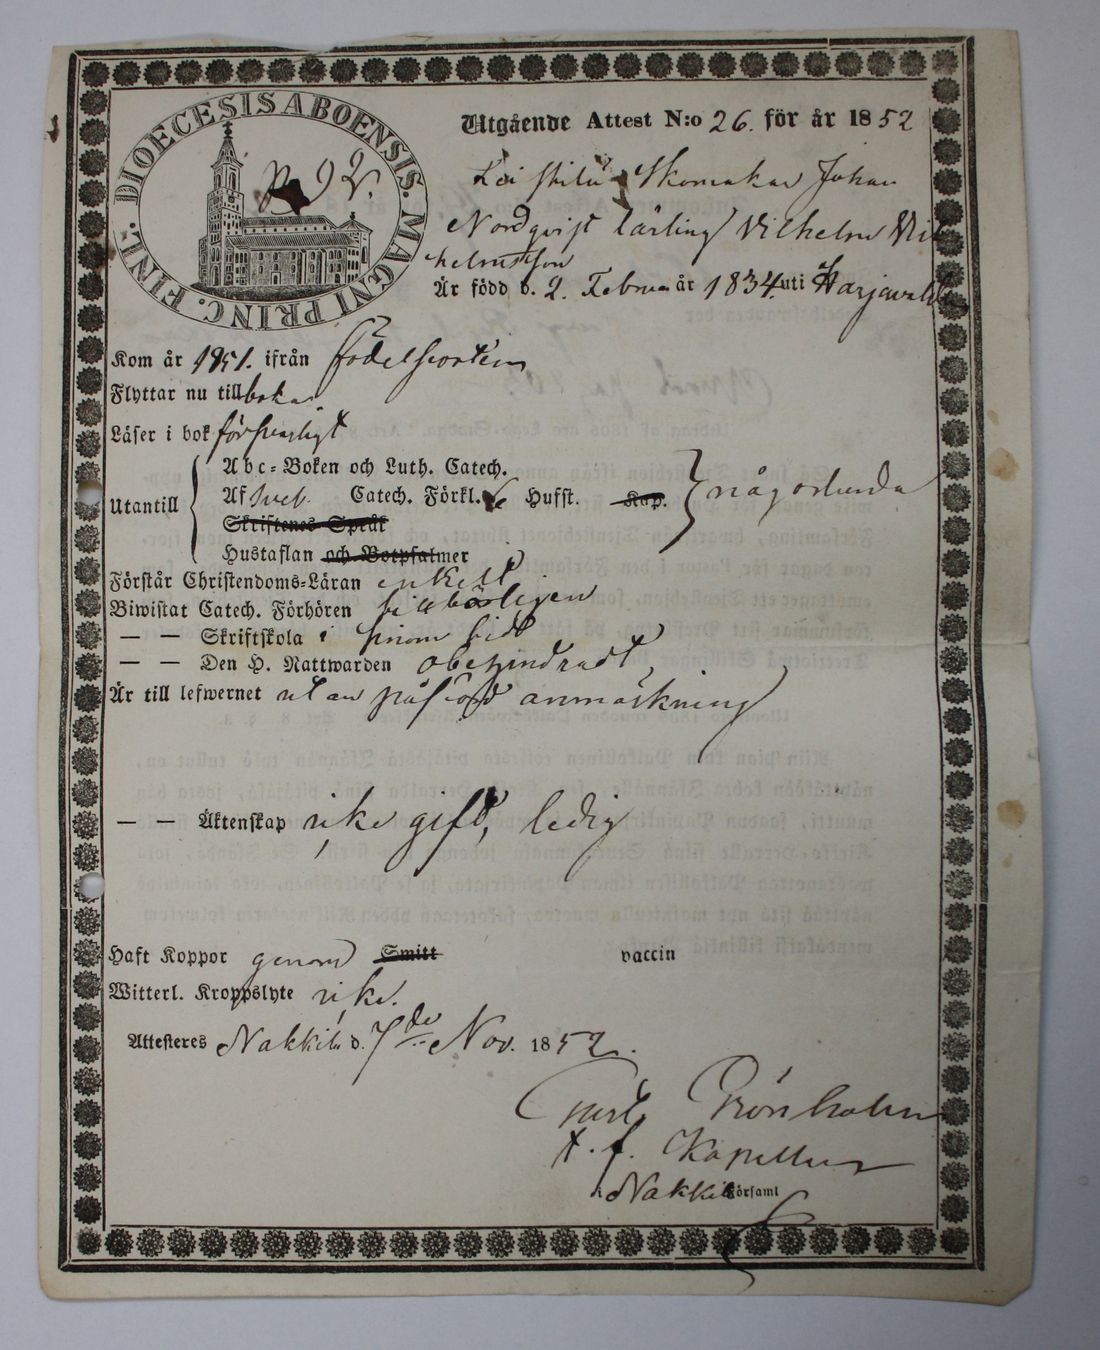 DIOECESIS ABOENSIS. MAGNI PRINC. FINL.
P. 92.
Utgående Attest N:o 26. för år 1852
Skomakar Johan
Nordqvist lärling Vilhelm Vil
helmsson
Är född d. 2. Februa år 1834. uti Harjavalda
Kom år 1851. ifrån födelseorten
Flyttar nu till
Läser i bok försvarligt
Utantill
Abc-Boken och Luth. Catech.
Af Sveb. Catech. Förkl. 6 Hufst. Kap. någorlunda
Skriftenes Språk
Hustaflan och Botpsalmer
Förstår Christendoms-Läran enkelt
Biwistat Catech. Förhören behörigen
— — Skriftskola i sinom tid
— — Den H. Nattwarden obehindradt
Är till lefwernet utan påförd anmärkning
— — Äktenskap icke gift, ledig
Haft Koppor genom Smitt vaccin
Witterl. Kroppslyte icke.
Attesteres Nakkila d. 7de Nov. 1852.
Grönholm
t. f. Kapellan
i Nakkila Församl